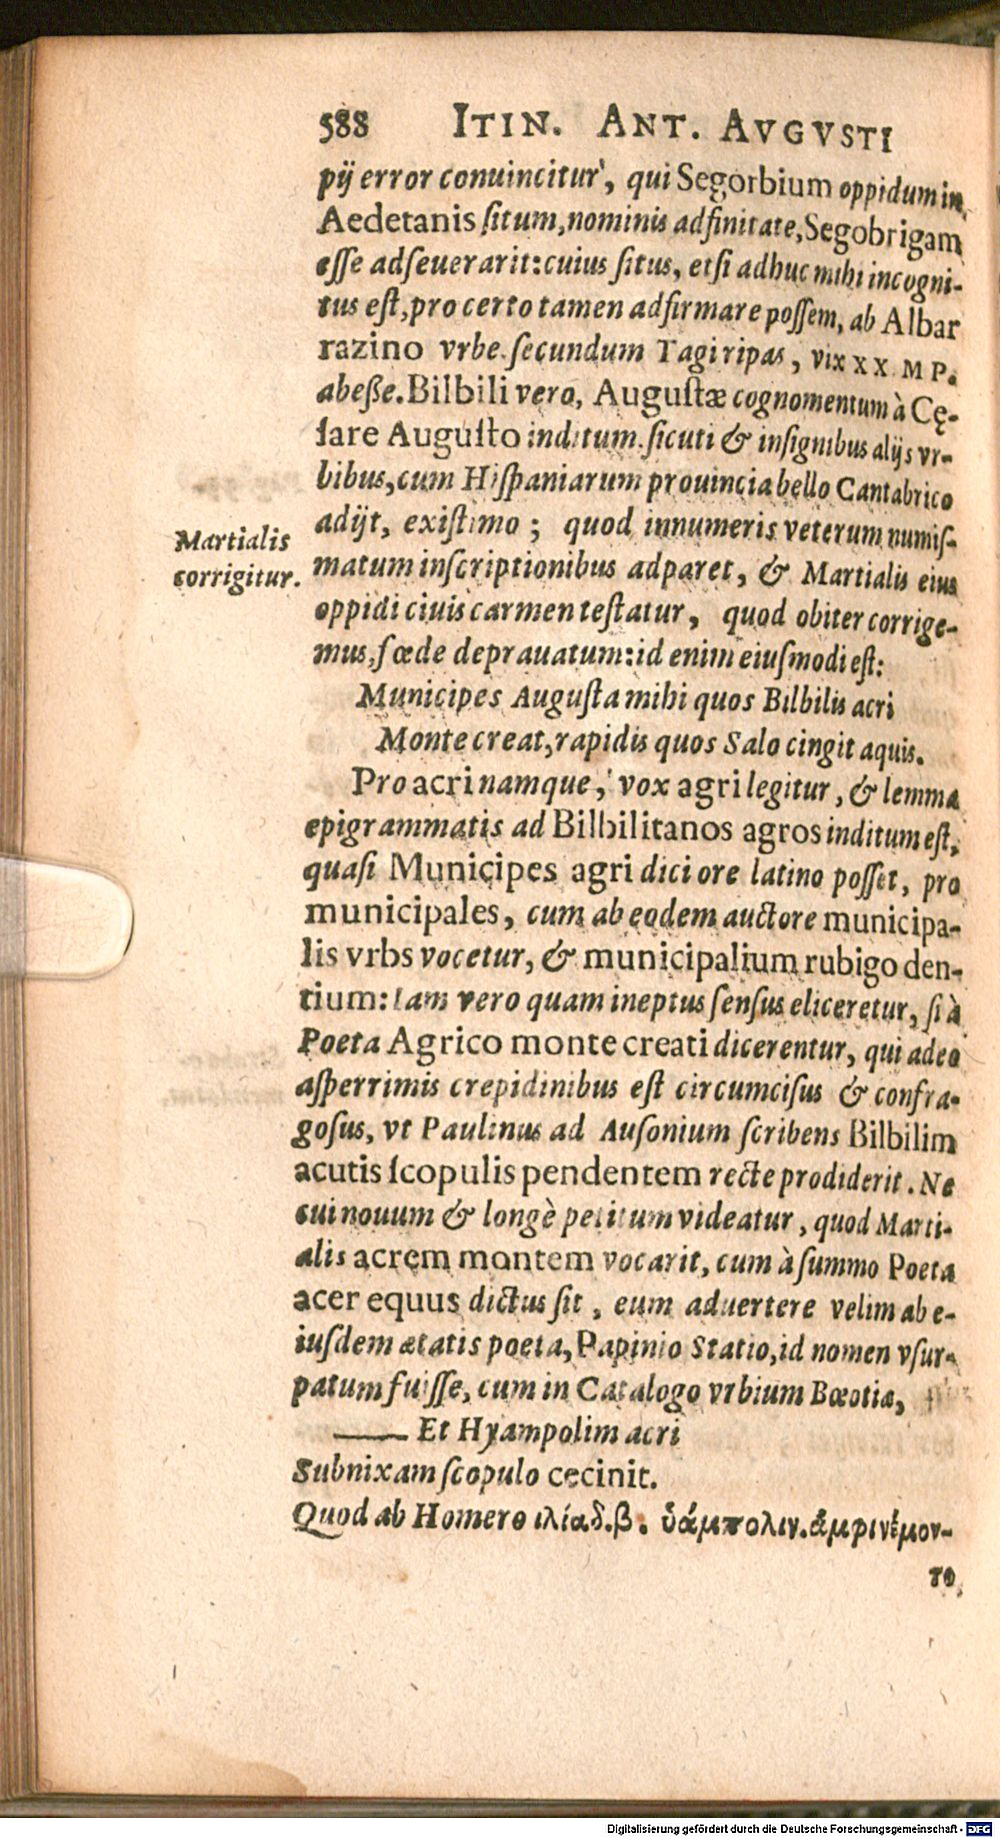 588 ITIN. ANT. AVGVSTI
pij error conuincitur, qui Segorbium oppidum in
Aedetanis ſitum, nominis adfinitate, Segobrigam
eſſe adſeuerarit: cuius ſitus, etſi adhuc mihi incogni-
tus eſt, pro certo tamen adfirmare poſſem, ab Albar
razino vrbe ſecundum Tagi ripas, vix XX. M P.
abeße. Bilbili vero, Auguſtæ cognomentum à Cę-
ſare Auguſto inditum ſicuti & inſignibus alijs vr-
bibus, cum Hiſpaniarum prouincia bello Cantabrico
adijt, exiſtimo; quod innumeris veterum numiſ-
Martialis
corrigitur.
matum inſcriptionibus adparet, & Martialis eius
oppidi ciuis carmen teſtatur, quod obiter corrige-
mus, fœde deprauatum: id enim eiuſmodi eſt:
Municipes Auguſta mihi quos Bilbilis acri
Monte creat, rapidis quos Salo cingit aquis.
Pro acri namque, vox agri legitur, & lemma
epigrammatis ad Bilbilitanos agros inditum eſt,
quaſi Municipes agri dici ore latino poſſet, pro
municipales, cum ab eodem auctore municipa-
lis vrbs vocetur, & municipalium rubigo den-
tium: Iam vero quam ineptus ſenſus eliceretur, ſi à
Poeta Agrico monte creati dicerentur, qui adeo
aſperrimis crepidinibus eſt circumciſus & confra-
goſus, vt Paulinus ad Auſonium ſcribens Bilbilim
acutis ſcopulis pendentem recte prodiderit. Ne
cui nouum & longè petitum videatur, quod Marti-
alis acrem montem vocarit, cum à ſummo Poeta
acer equus dictus ſit, eum aduertere velim ab e-
iuſdem ætatis poeta, Papinio Statio, id nomen vſur-
patum fuiſſe, cum in Catalogo vrbium Bœotiæ,
—— Et Hyampolim acri
Subnixam ſcopulo cecinit.
Quod ab Homero ιλίαδ. β. ὑάμπολιν. ἀμφινέμον-
το,
Digitalisierung gefördert durch die Deutsche Forschungsgemeinschaft - DFG